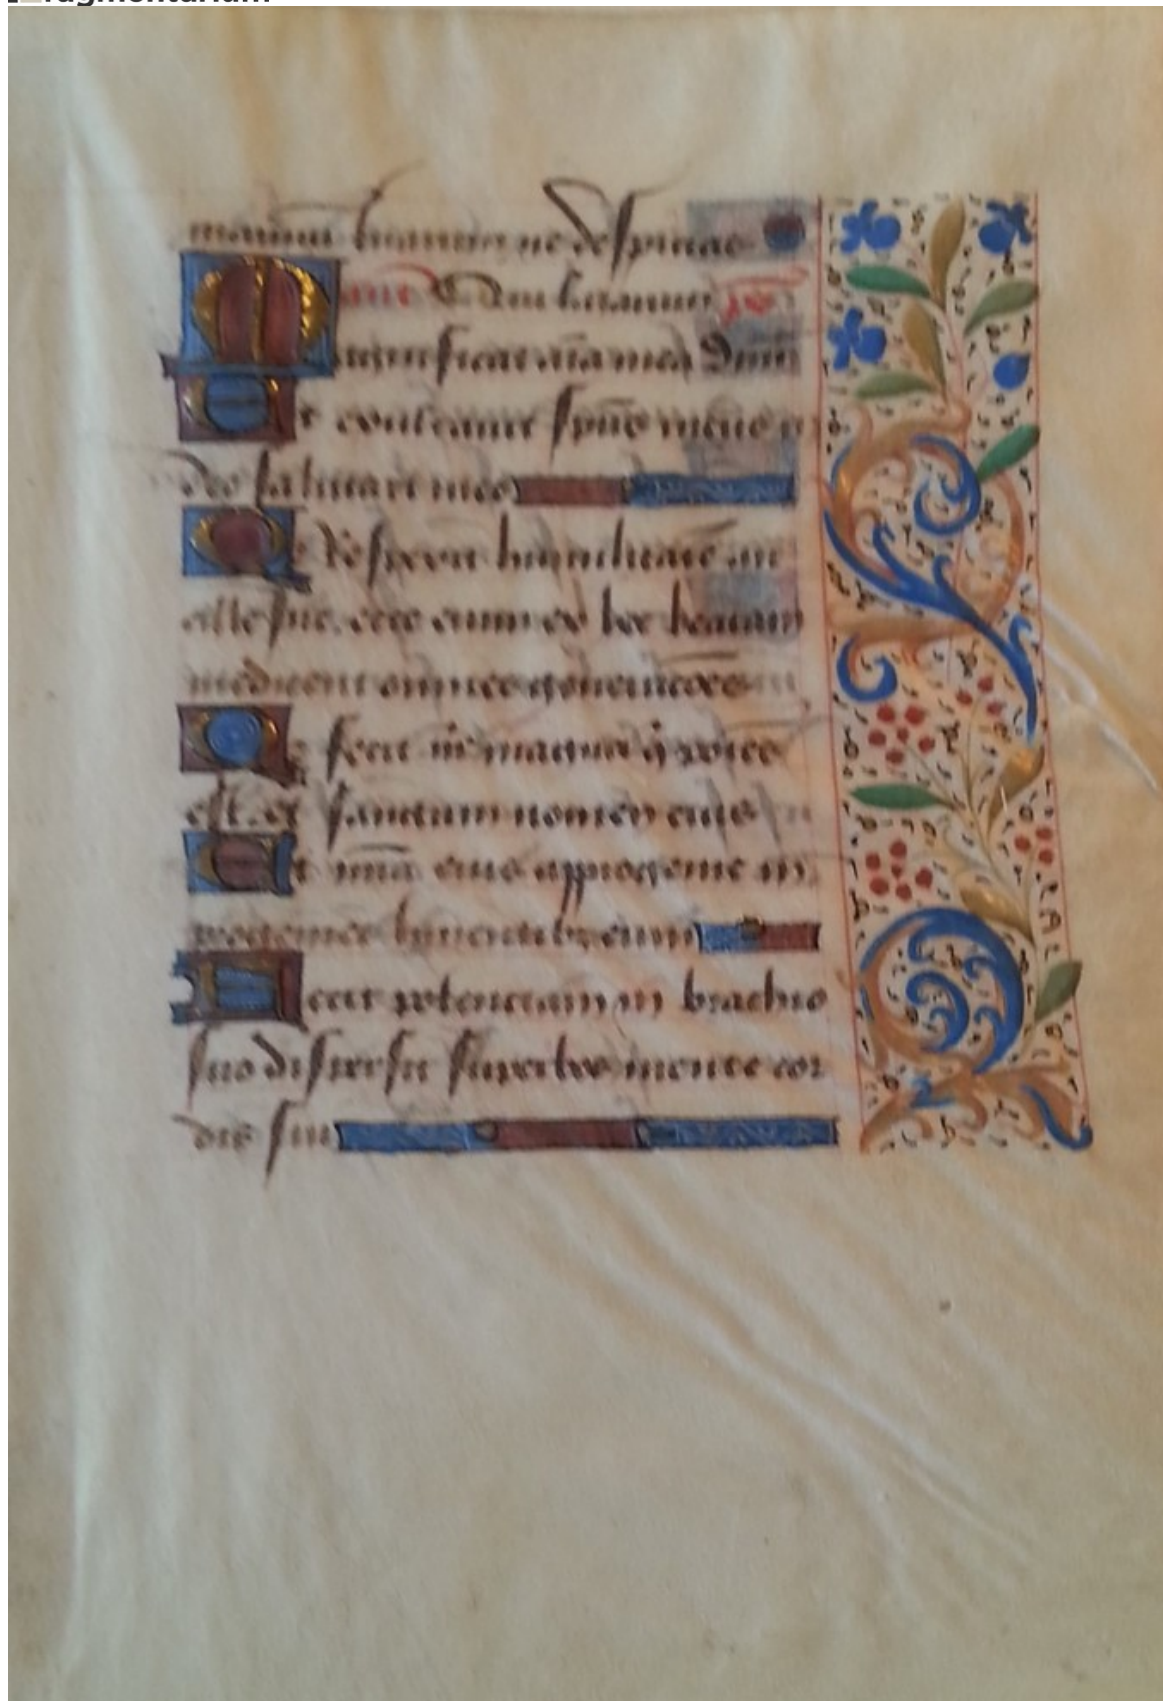 fragmentarium
manuum tuarum ne despicias
Magnificat aīa mea dnm
Et exultauit spūs meus in
deo salutari meo
Quia respexit humilitatē an
cille sue. ecce enim ex hoc beatam
me dicent omnes generationes
Quia fecit m̄ magna q̄ potēs
est. et sanctum nomen eius
Et mīa eius a progenie in
progenies timentibz eum
Fecit potenciam in brachio
suo dispersit superbos mente cor
dis sui